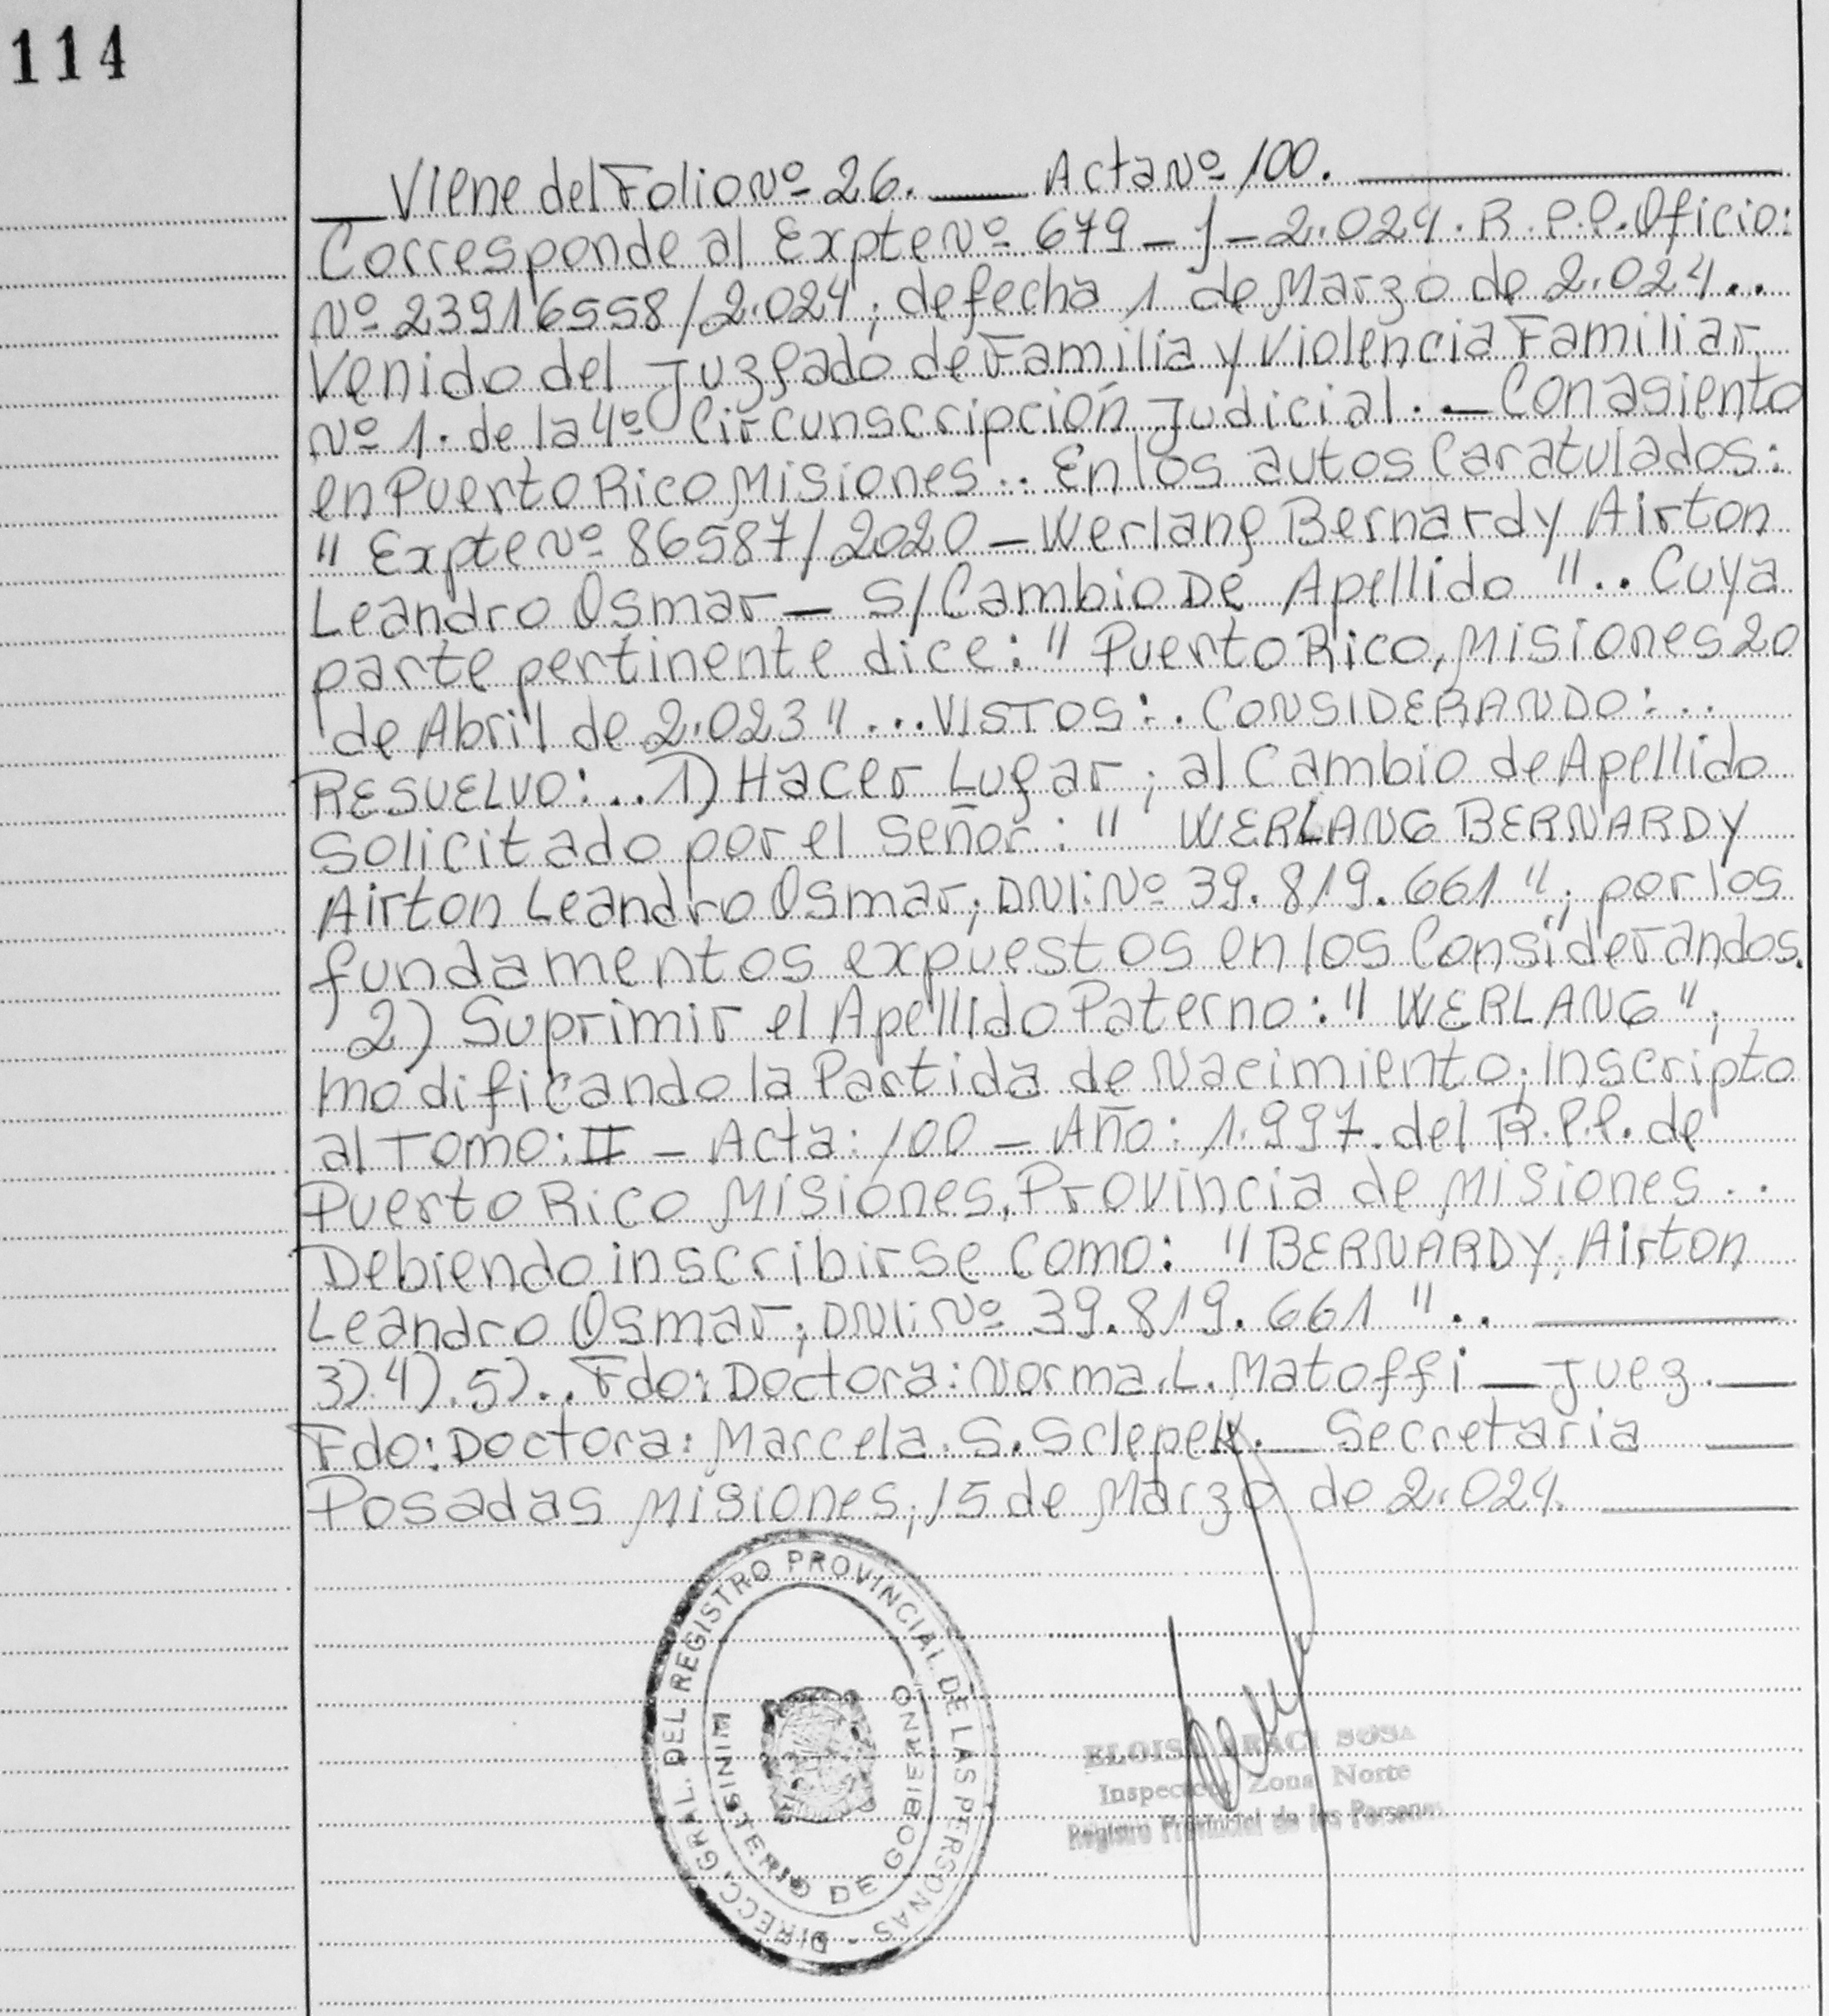 114
Viene del Folio Nº 26. Acta Nº 100.
Corresponde al Expte Nº 679 - J - 2.024. R.P.P. Oficio:
Nº 23916558/2.024; de fecha 1 de Marzo de 2.024..
Venido del Juzgado de Familia y Violencia Familiar
Nº 1. de la 4º Circunscripción Judicial. - Con asiento
en Puerto Rico Misiones.. En los autos Caratulados:
" Expte Nº 86587/2020 - Werlang Bernardy Airton
Leandro Osmar - S/Cambio De Apellido ".. Cuya
parte pertinente dice: " Puerto Rico, Misiones 20
de Abril de 2.023 "... VISTOS:. CONSIDERANDO:..
RESUELVO:.. 1) Hacer Lugar; al Cambio de Apellido
Solicitado por el Señor: " WERLANG BERNARDY
Airton Leandro Osmar; DNI: Nº 39.819.661 "; por los
fundamentos expuestos en los Considerandos.
2) Suprimir el Apellido Paterno: " WERLANG ";
modificando la Partida de Nacimiento; Inscripto
al Tomo: II - Acta: 100 - Año: 1.997. del R.P.P. de
Puerto Rico Misiones, Provincia de Misiones..
Debiendo inscribirse Como: " BERNARDY, Airton
Leandro Osmar; DNI: Nº 39.819.661 "..
3).4).5).. Fdo: Doctora: Norma. L. Matoffi - Juez.
Fdo: Doctora: Marcela. S. Sclepek. - Secretaria
Posadas Misiones; 15 de Marzo de 2.024.
DIRECC. GRAL. DEL REGISTRO PROVINCIAL DE LAS PERSONAS -
MINISTERIO DE GOBIERNO
ELOISA ARACI SOSA
Inspectora Zona Norte
Registro Provincial de las Personas